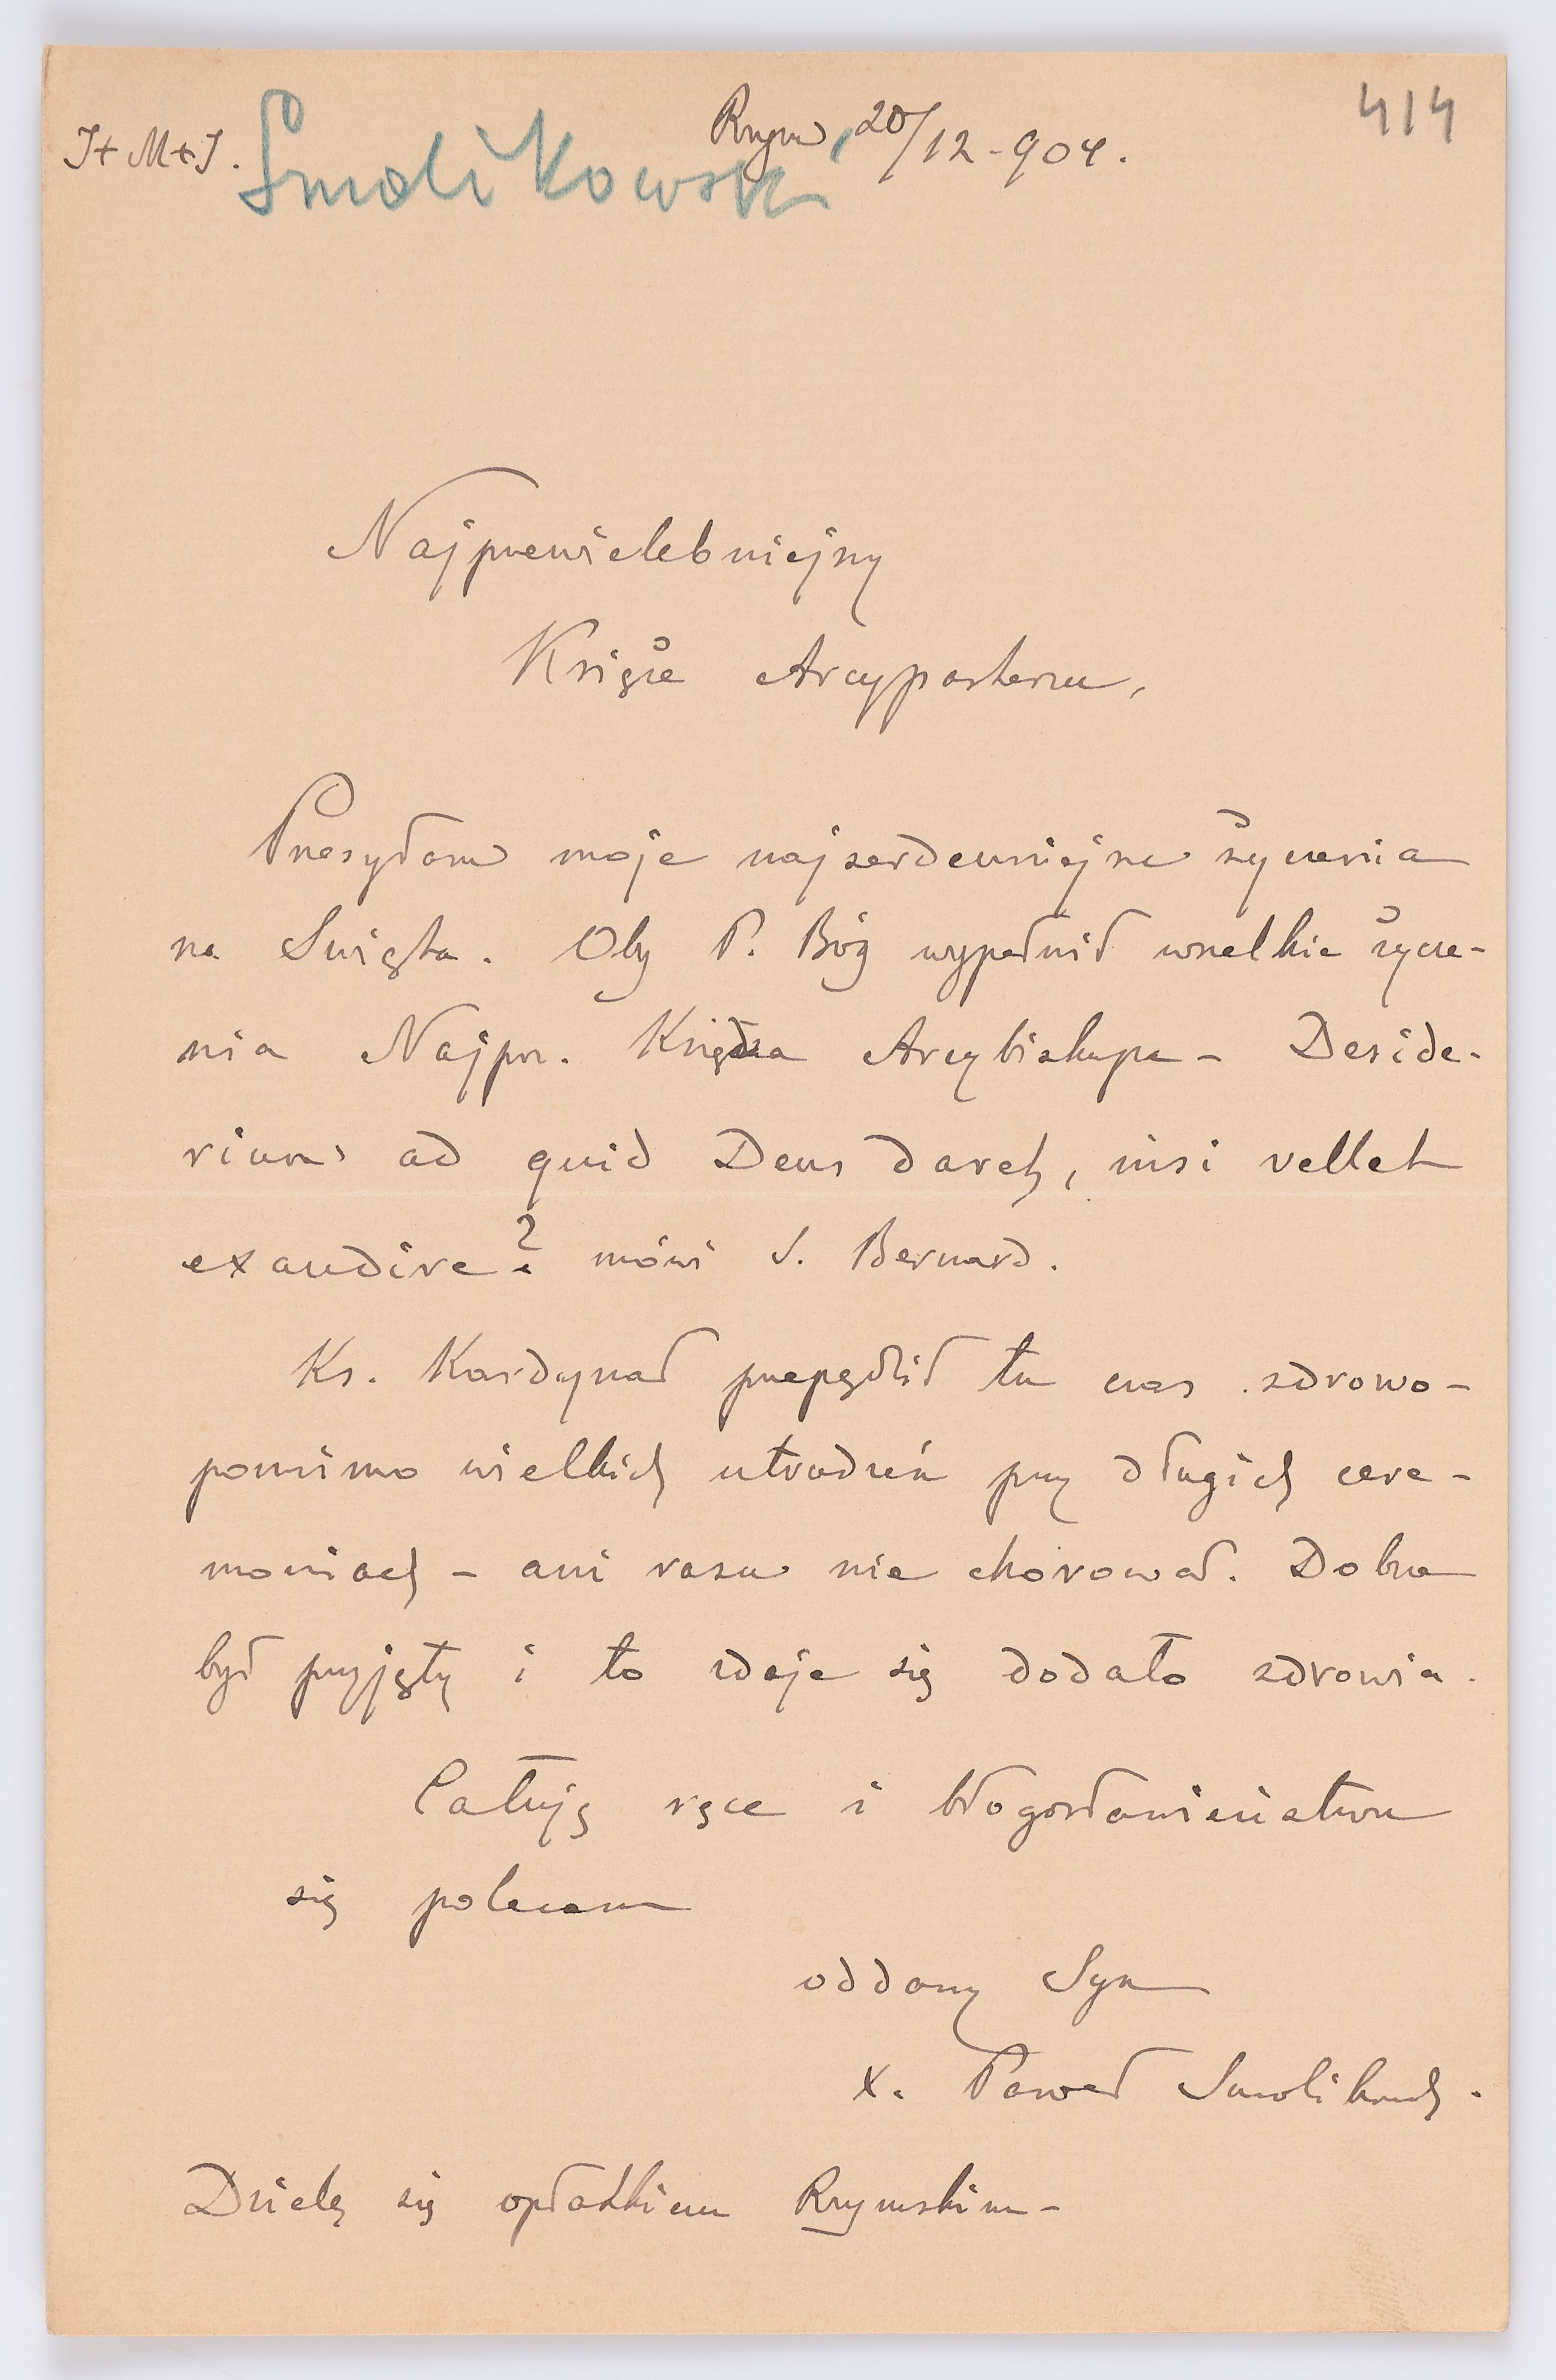 J+M+J. Smolikowski Rzym, 20/12-904. 414
Najprzewielebniejszy
Księże Arcypasterzu,
Przesyłam moje najserdeczniejsze życzenia
na Swięta. Oby P. Bóg wypełnił wszelkie życze-
nia Najprz. Księdza Arcybiskupa - Deside-
rium ad quid Deus daret, nisi vellet
exaudire? mówi S. Bernard.
Ks. Kardynał przepędził tu czas zdrowo -
pomimo wielkich utrudzeń przy długich cere-
moniach - ani razu nie chorował. Dobrze
był przyjęty i to zdaje się dodało zdrowia.
Całuję ręce i błogosławieństwu
się polecam
oddany Syn
X. Paweł Smolikowski.
Dzielę się opłatkiem Rzymskim -